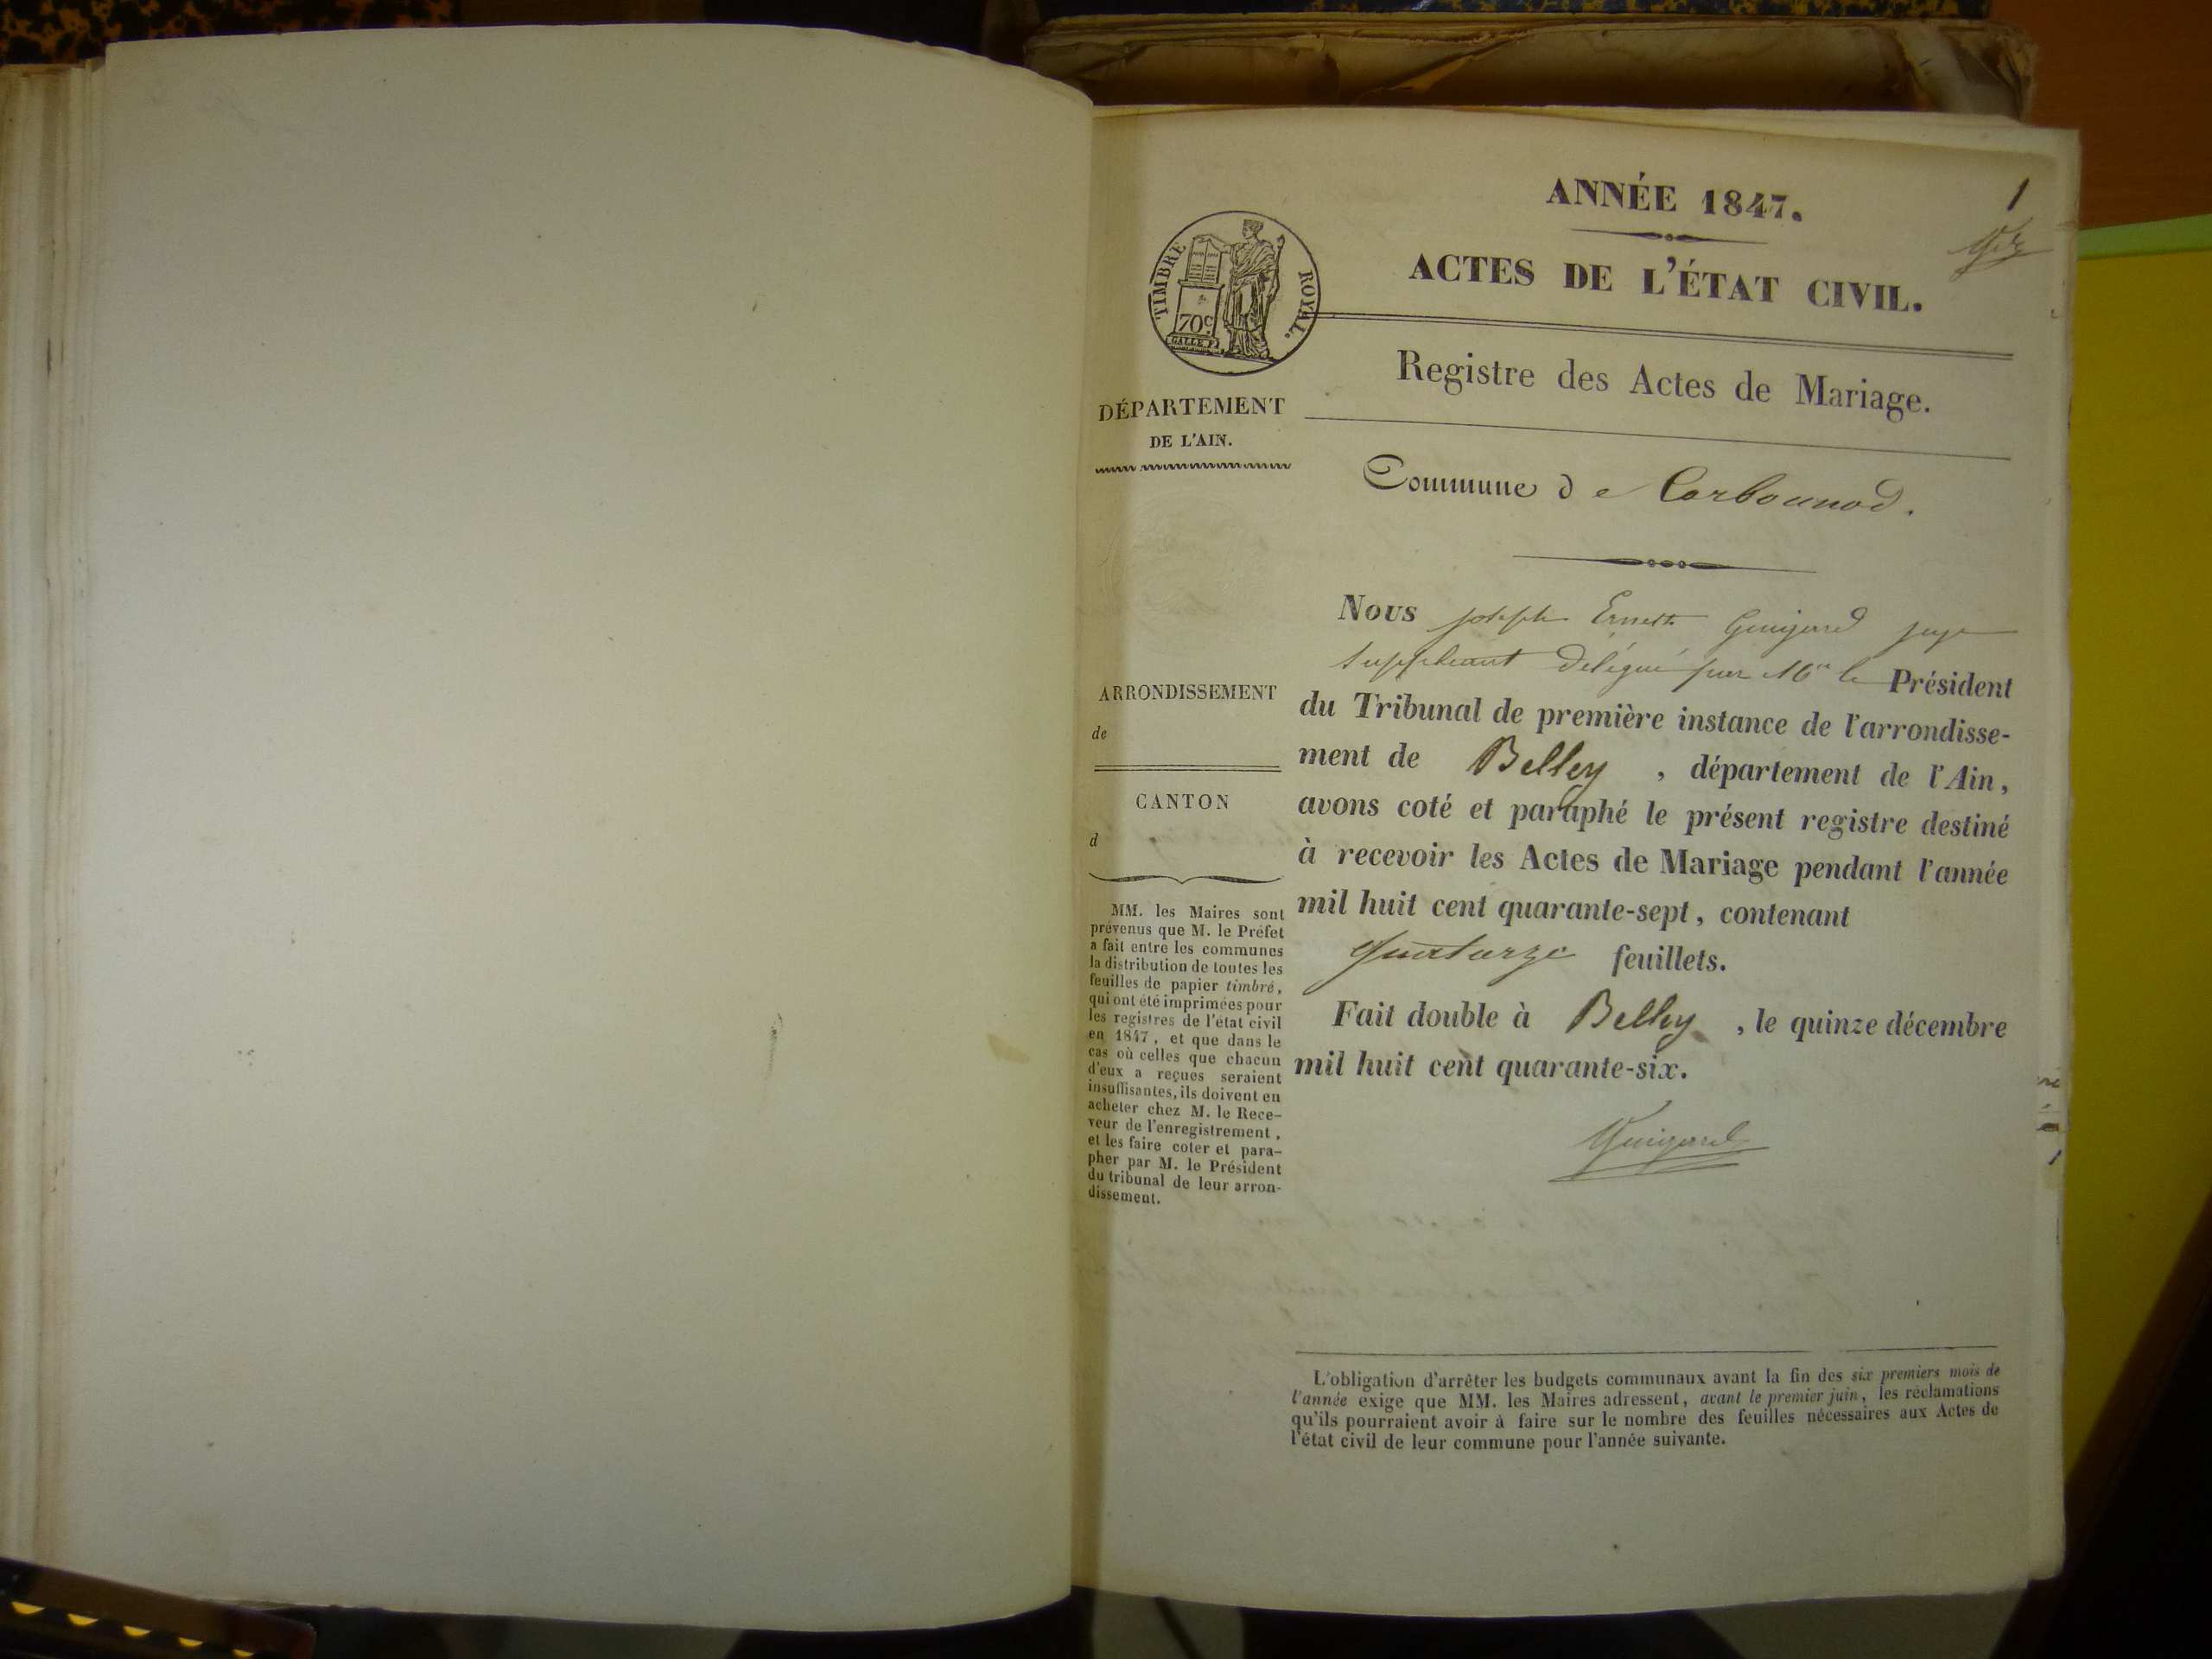 ANNÉE 1847.
1
ACTES DE L'ÉTAT CIVIL.
TIMBRE ROYAL.
70c
GALLE F.
Registre des Actes de Mariage.
DÉPARTEMENT
DE L'AIN.
Commune de Corbonnod.
ARRONDISSEMENT
de
CANTON
d
MM. les Maires sont
prévenus que M. le Préfet
a fait entre les communes
la distribution de toutes les
feuilles de papier timbré,
qui ont été imprimées pour
les registres de l'état civil
en 1847, et que dans le
cas où celles que chacun
d'eux a reçues seraient
insuffisantes, ils doivent en
acheter chez M. le Rece-
veur de l'enregistrement,
et les faire coter et para-
pher par M. le Président
du tribunal de leur arron-
dissement.
Nous joseph Ernest Guigard juge
suppleant délégué par Mr le Président
du Tribunal de première instance de l'arrondisse-
ment de Belley, département de l'Ain,
avons coté et paraphé le présent registre destiné
à recevoir les Actes de Mariage pendant l'année
mil huit cent quarante-sept, contenant
quatorze feuillets.
Fait double à Belley, le quinze décembre
mil huit cent quarante-six.
Guigard
L'obligation d'arrêter les budgets communaux avant la fin des six premiers mois de
l'année exige que MM. les Maires adressent, avant le premier juin, les réclamations
qu'ils pourraient avoir à faire sur le nombre des feuilles nécessaires aux Actes de
l'état civil de leur commune pour l'année suivante.